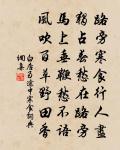 路旁寒食行人盡
獨占春愁在路旁
馬上垂鞭愁不語
風吹百草野田香
白居易途中寒食詞典
網集